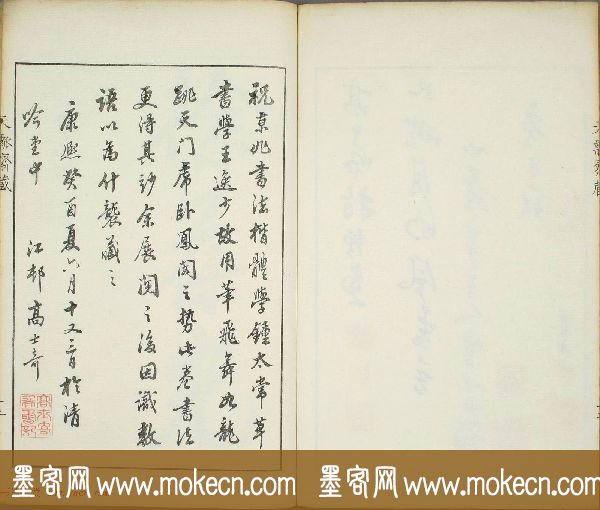 祝京兆書法楷體學鍾太常草
書學王逸少故用筆飛舞如龍
跳天门虎卧鳳閣之勢此卷書法
更得其妙余展閱之後因識數
語以為什襲藏之
康熙癸酉夏六月十又二日於清
吟堂中 江邨高士奇
墨客网 www.mokecn.com 墨客网 www.mokecn.com